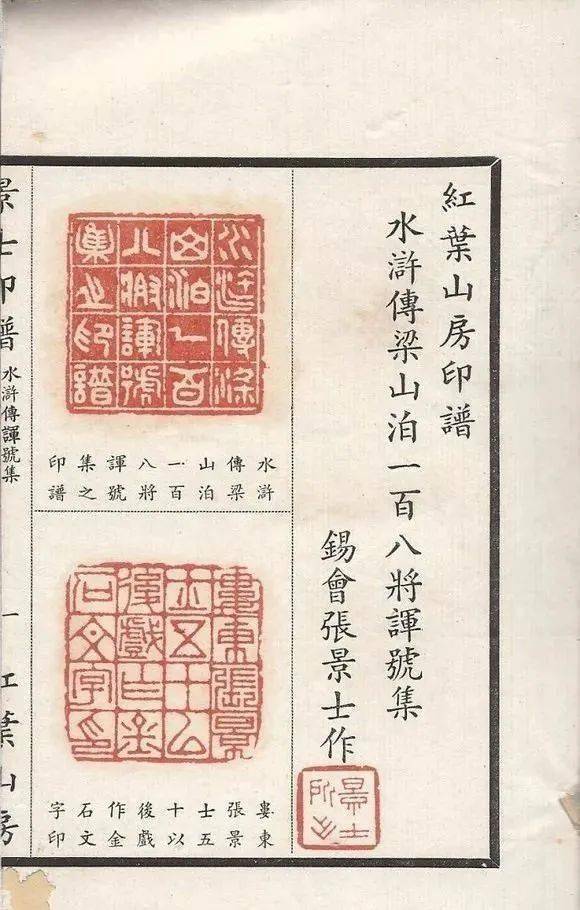 紅葉山房印譜
水滸傳梁山泊一百八將諢號集
錫會張景士作
景士
所作
水滸傳梁
山泊一百
八將諢號
集之印譜
水滸
傳梁
山泊
一百
八將
諢號
集之
印譜
婁東張景
士五十以
後戲作金
石文字印
婁東
張景
士五
十以
後戲
作金
石文
字印
景士印譜
水滸傳諢號集
一
紅葉山房